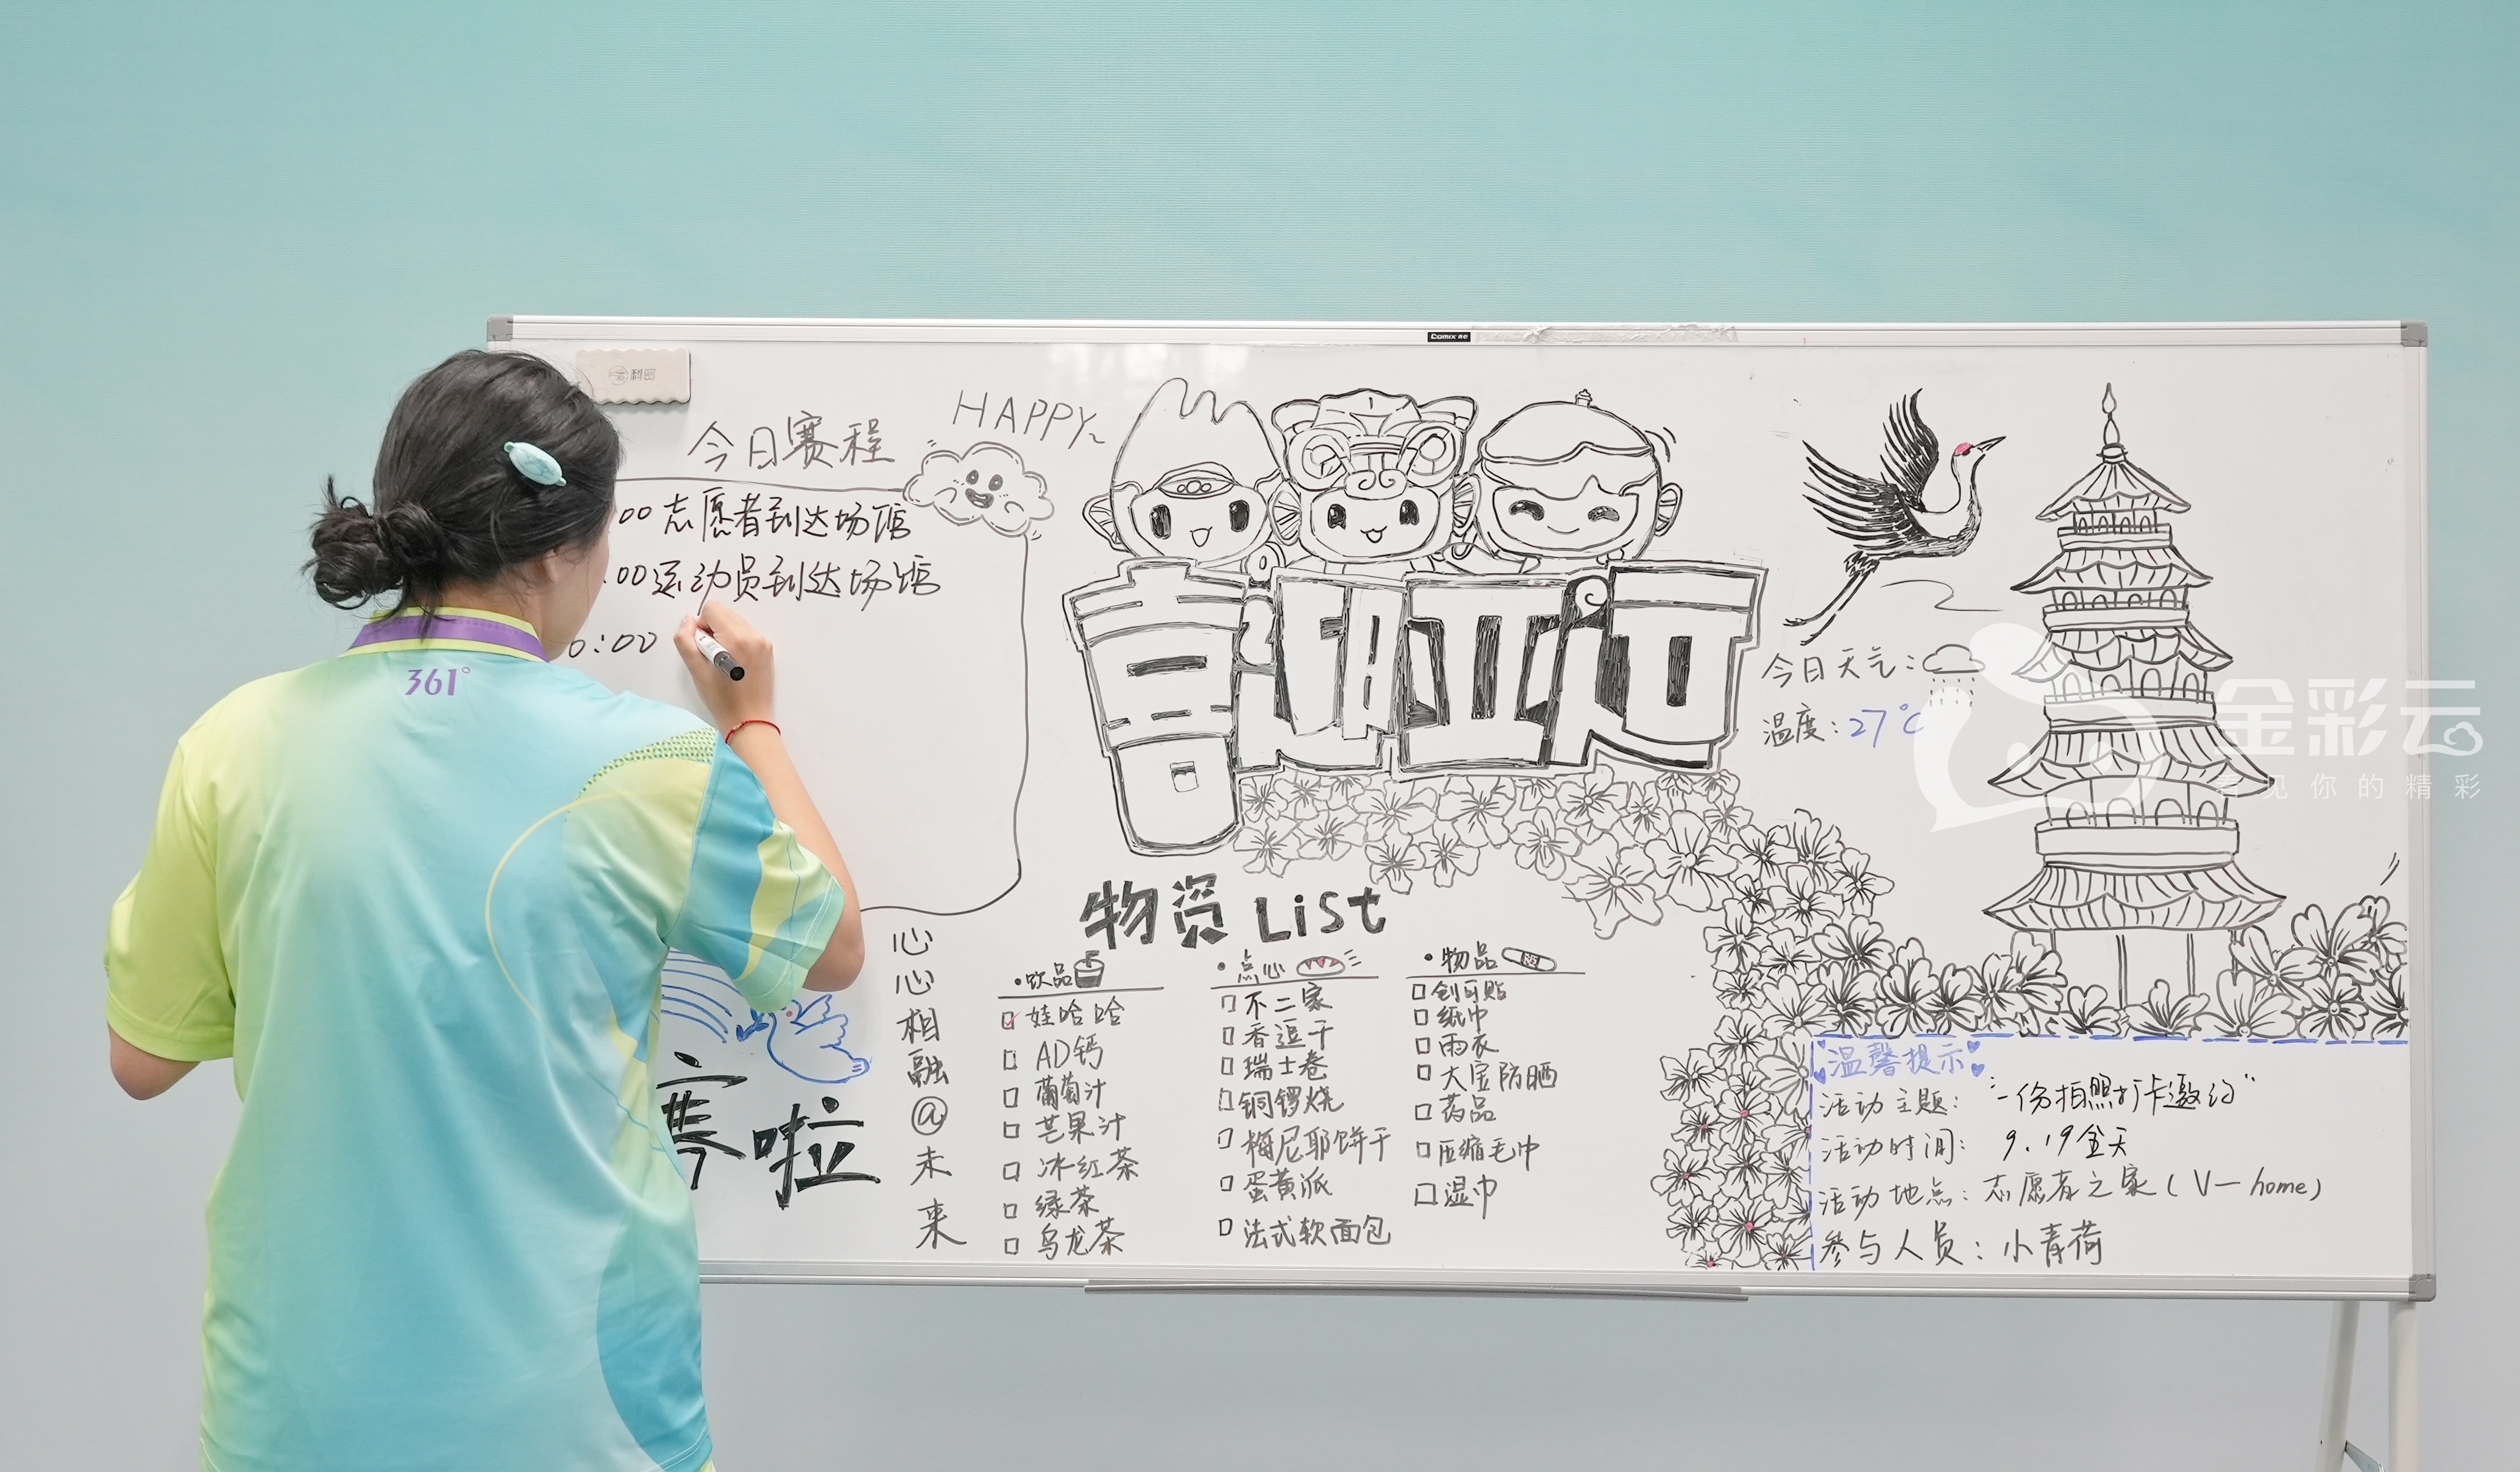 Comix 齐心
HAPPY~
今日赛程
:00 志愿者到达场馆
:00 运动员到达场馆
0:00
361°
喜迎亚运
今日天气:
温度: 27℃
金彩云
看见你的精彩
物资 List
心心相融@未来
赛啦
·饮品
娃哈哈
AD钙
葡萄汁
芒果汁
冰红茶
绿茶
乌龙茶
·点心
不二家
香逗干
瑞士卷
铜锣烧
梅尼耶饼干
蛋黄派
法式软面包
·物品
创可贴
纸巾
雨衣
大宝防晒
药品
压缩毛巾
湿巾
温馨提示
活动主题: “一份拍照打卡邀约”
活动时间: 9.19全天
活动地点: 志愿者之家(V-home)
参与人员: 小青荷